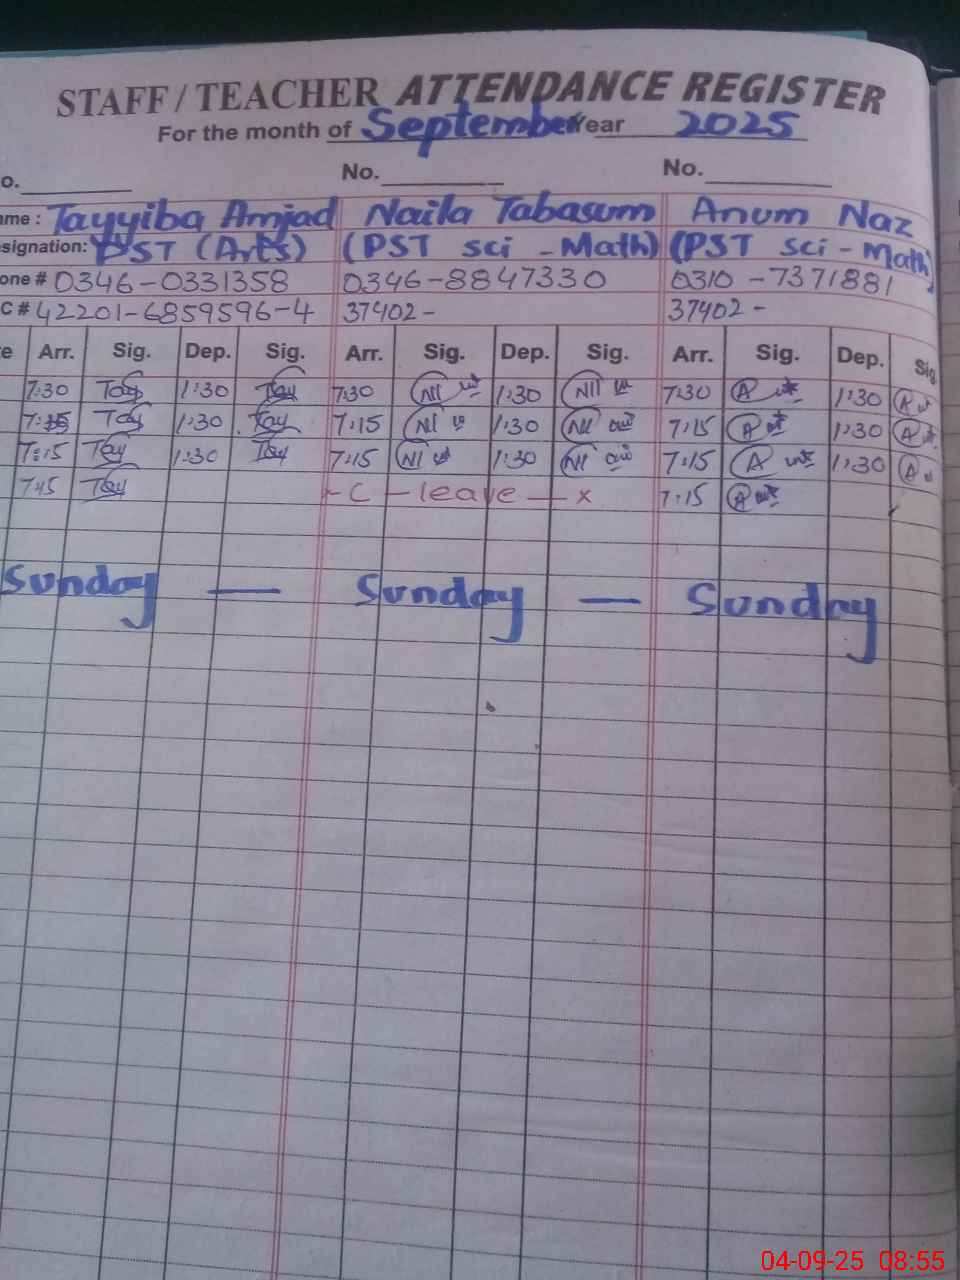 STAFF / TEACHER ATTENDANCE REGISTER
For the month of September Year 2025
o. No. No.
ame : Tayyiba Amjad Naila Tabasum Anum Naz
signation: PST (Arts) (PST sci - Math) (PST sci - Math)
one # 0346-0331358 0346-8847330 0310-7371881
C # 42201-6859596-4 37402- 37402-
te Arr. Sig. Dep. Sig. Arr. Sig. Dep. Sig. Arr. Sig. Dep. Sig
7:30 Tay 1:30 Tay 7:30 NT 1:30 NT 7:30 A 1:30 A
7:15 Tay 1:30 Tay 7:15 NT 1:30 NT 7:15 A 1:30 A
7:15 Tay 1:30 Tay 7:15 NT 1:30 NT 7:15 A 1:30 A
7:15 Tay - C - leave - x 7:15 A
Sunday — Sunday — Sunday
04-09-25 08:55